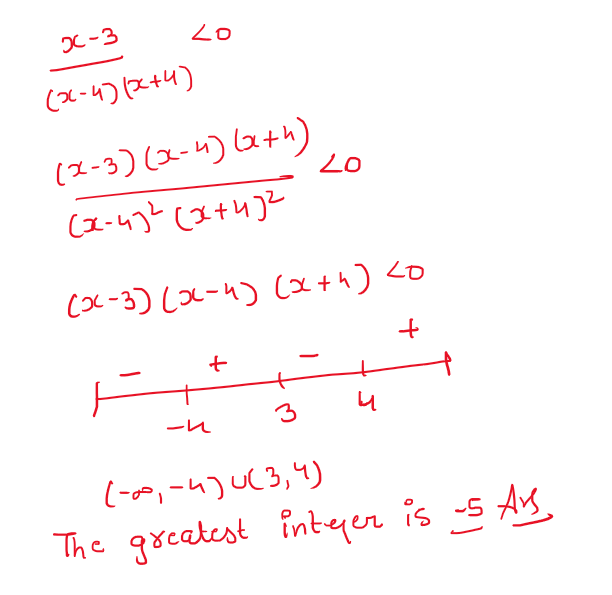 x-3 <0
(x-4)(x+4)
(x-3)(x-4)(x+4) <0
(x-4)² (x+4)²
(x-3)(x-4)(x+4) <0
- + - +
-4 3 4
(-∞,-4)∪(3,4)
The greatest integer is -5 Ans